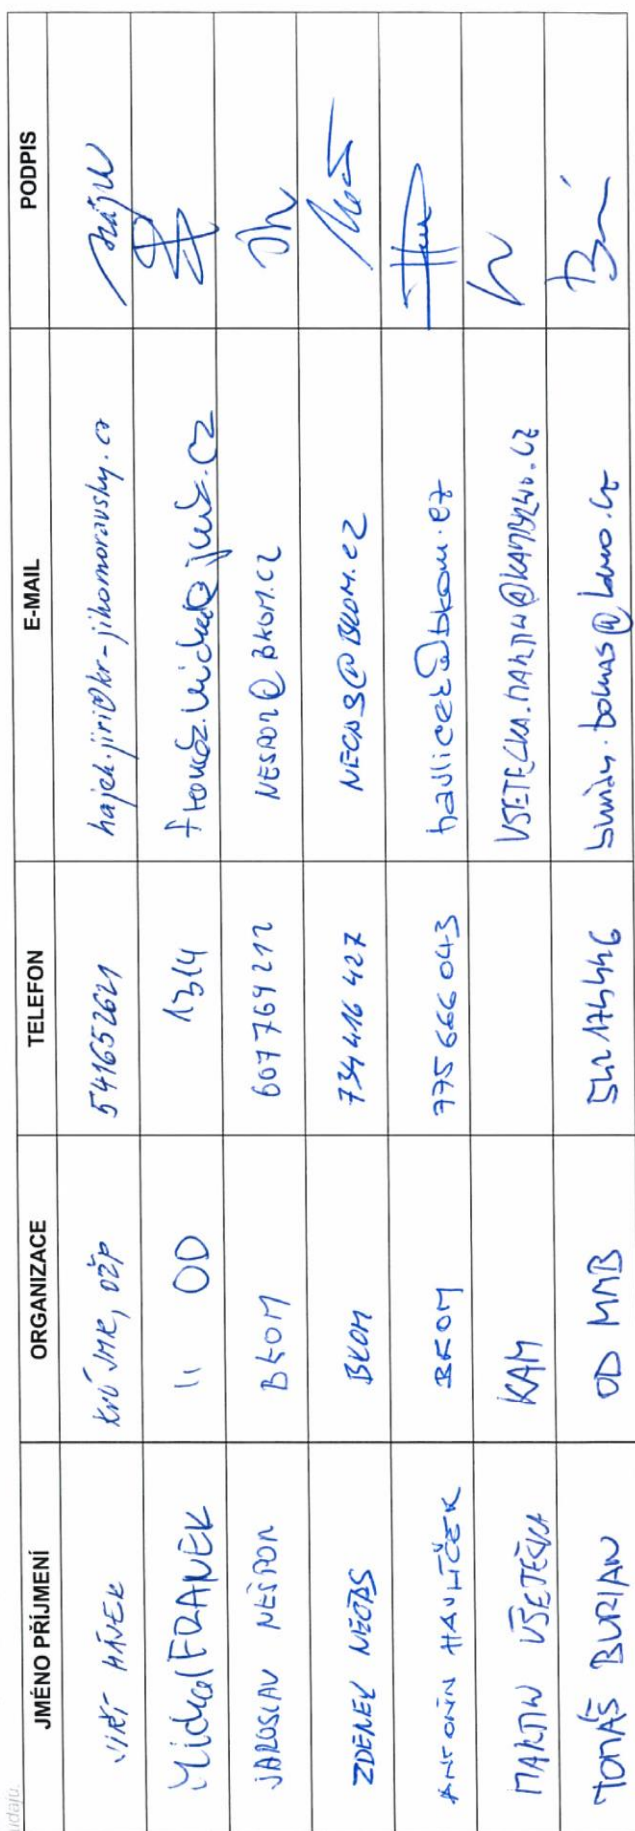 údajů.
JMÉNO PŘÍJMENÍ ORGANIZACE TELEFON E-MAIL PODPIS
JIŘÍ HÁJEK KrÚ JMK, OŽP 541652621 hajek.jiri@kr-jihomoravsky.cz Hájek
Michal FRANEK 11 OD 1314
JAROSLAV NEŠPOR BKOM 607769212 NESPOR@BKOM.CZ
ZDENEK NEČAS BKOM 734 416 427 NECAS@BKOM.CZ
ANTONÍN HAVLÍČEK BKOM 775 666 043 havlicek@bkom.cz
MARTIN VŠETEČKA KAM VSETECKA.MARTIN@KAMBRNO.CZ
TOMÁŠ BURIAN OD MMB 542 174 446 burian.tomas@brno.cz